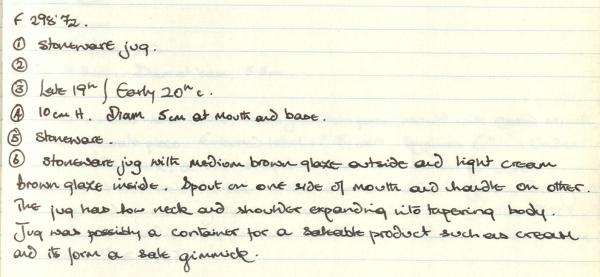 F 298'72.
① Stoneware jug.
②
③ Late 19th / Early 20th c.
④ 10cm H. Diam 5cm at mouth and base.
⑤ Stoneware.
⑥ Stoneware jug with medium brown glaze outside and light cream
brown glaze inside. Spout on one side of mouth and handle on other.
The jug has low neck and shoulder expanding into tapering body.
Jug was possibly a container for a saleable product such as cream
and its form a sale gimmick.